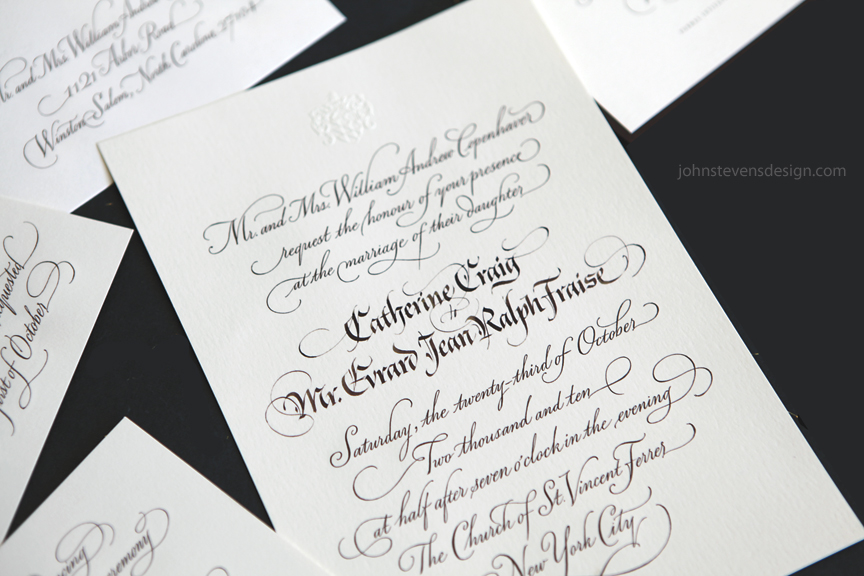 Mr. and Mrs. William Andrew
1121 Arbor Road
Winston Salem, North Carolina, 27104
johnstevensdesign.com
Mr. and Mrs. William Andrew Copenhaver
request the honour of your presence
at the marriage of their daughter
Catherine Craig
to
Mr. Evrard Jean Ralph Fraise
Saturday, the twenty-third of October
Two thousand and ten
at half after seven o'clock in the evening
The Church of St. Vincent Ferrer
New York City
requested
first of October